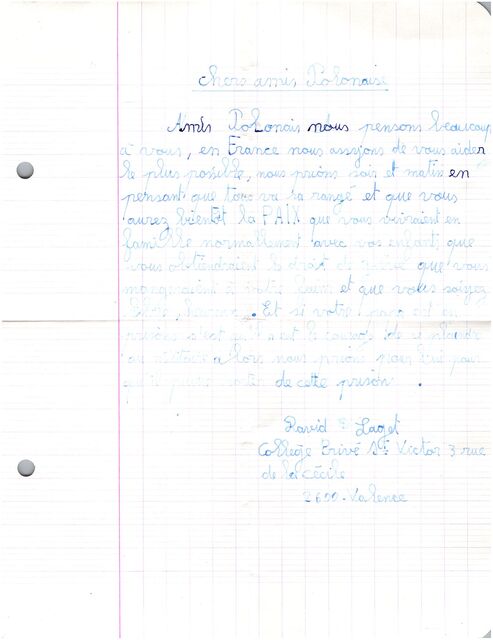 chers amis Polonaise
Amis Polonais nous pensons beaucoup
à vous, en France nous assyons de vous aider
le plus possible, nous prions soir et matin en
pensant que tous va sa rangé et que vous
aurez bientôt la PAIX que vous vivraient en
famille normallement avec vos enfants que
vous obtiendraient le droit de grève que vous
mangeraient à votre faim et que vous soyez
libre, heureux. Et si votre papa est en
prison c'est qu'il a eut le courage de
militaire alors nous prions pour lui pour
qu'il puise sortir de cette prison.
David Laget
Collège Privé St Victor 3 rue
de la cécile
2600 - Valence